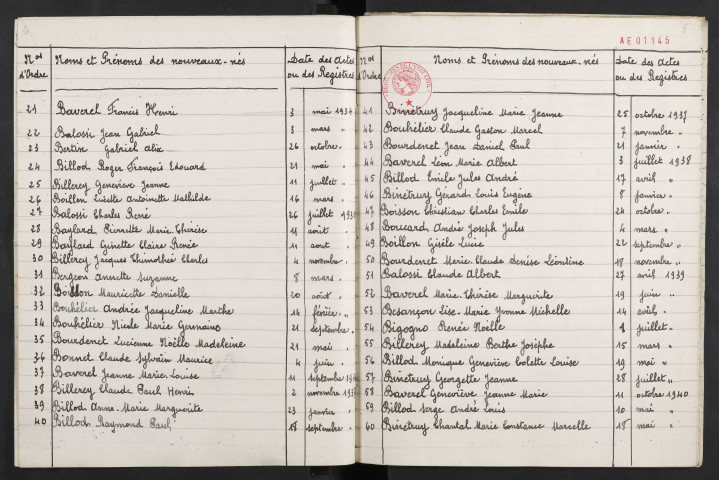 Nos d'Ordre Noms et Prénoms des nouveaux-nés Date des Actes ou des Registres
21 Baverel Francis Henri 3 mai 1934
22 Balossi Jean Gabriel 3 mars "
23 Bertin Gabriel Alix 26 octobre "
24 Billod Roger François Edouard 21 mai "
25 Billerey Geneviève Jeanne 11 juillet "
26 Boillon Lucette Antoinette Mathilde 16 mars "
27 Balossi Charles René 26 juillet
28 Baylard Pierrette Marie Thérèse août "
29 Baylard Ginette Claire Renée 11 août "
30 Billerey Jacques Thimothée Charles 4 novembre "
31 Bergeon Annette Suzanne 8 mars "
32 Mauricette Danielle 20 août "
33 Bouhélier Andrée Jacqueline Marthe 14 février "
34 Bouhélier Nicole Marie Germaine 21 septembre "
35 Bourdenet Lucienne Noëlle Madeleine 21 mai
36 Bonnet Claude Sylvain Maurice 4 juin "
37 Baverel Jeanne Marie Louise 11 septembre
38 Billerey Claude Paul Henri 2 novembre
39 Billod Anne Marie Marguerite 23 janvier "
40 Billod Raymond Paul 18 septembre "
AE01145
Nos d'Ordre Noms et Prénoms des nouveaux-nés Date des Actes ou des Registres
41 Binétruy Jacqueline Marie Jeanne 25 octobre 1937
42 Bouhélier Claude Gaston Marcel 7 novembre "
43 Bourdenet Jean Daniel Paul 21 janvier "
44 Baverel Léon Marie Albert 3 juillet 1938
45 Billod Emile Jules André 17 avril "
46 Binétruy Gérard Louis Eugène 8 janvier "
47 Boisson Christian Charles Emile 24 octobre "
48 Boucard André Joseph Jules 4 mars "
49 Boillon Gisèle Lucie 22 septembre "
50 Bourdenet Marie-Claude Denise Léontine 18 novembre "
51 Balossi Claude Albert 27 avril 1939
52 Baverel Marie-Thérèse Marguerite 19 juin "
53 Besançon Lise-Marie Yvonne Michelle 14 avril "
54 Bigogno Renée Noëlle juillet "
55 Billerey Madeleine Berthe Josèphe 15 mars "
56 Billod Monique Geneviève Colette Louise 19 mai "
57 Binétruy Georgette Jeanne 28 juillet "
58 Baverel Geneviève Jeanne Marie 11 octobre 1940
59 Billod Serge André Louis 10 mai "
60 Binétruy Chantal Marie Constance Marcelle 18 mai "